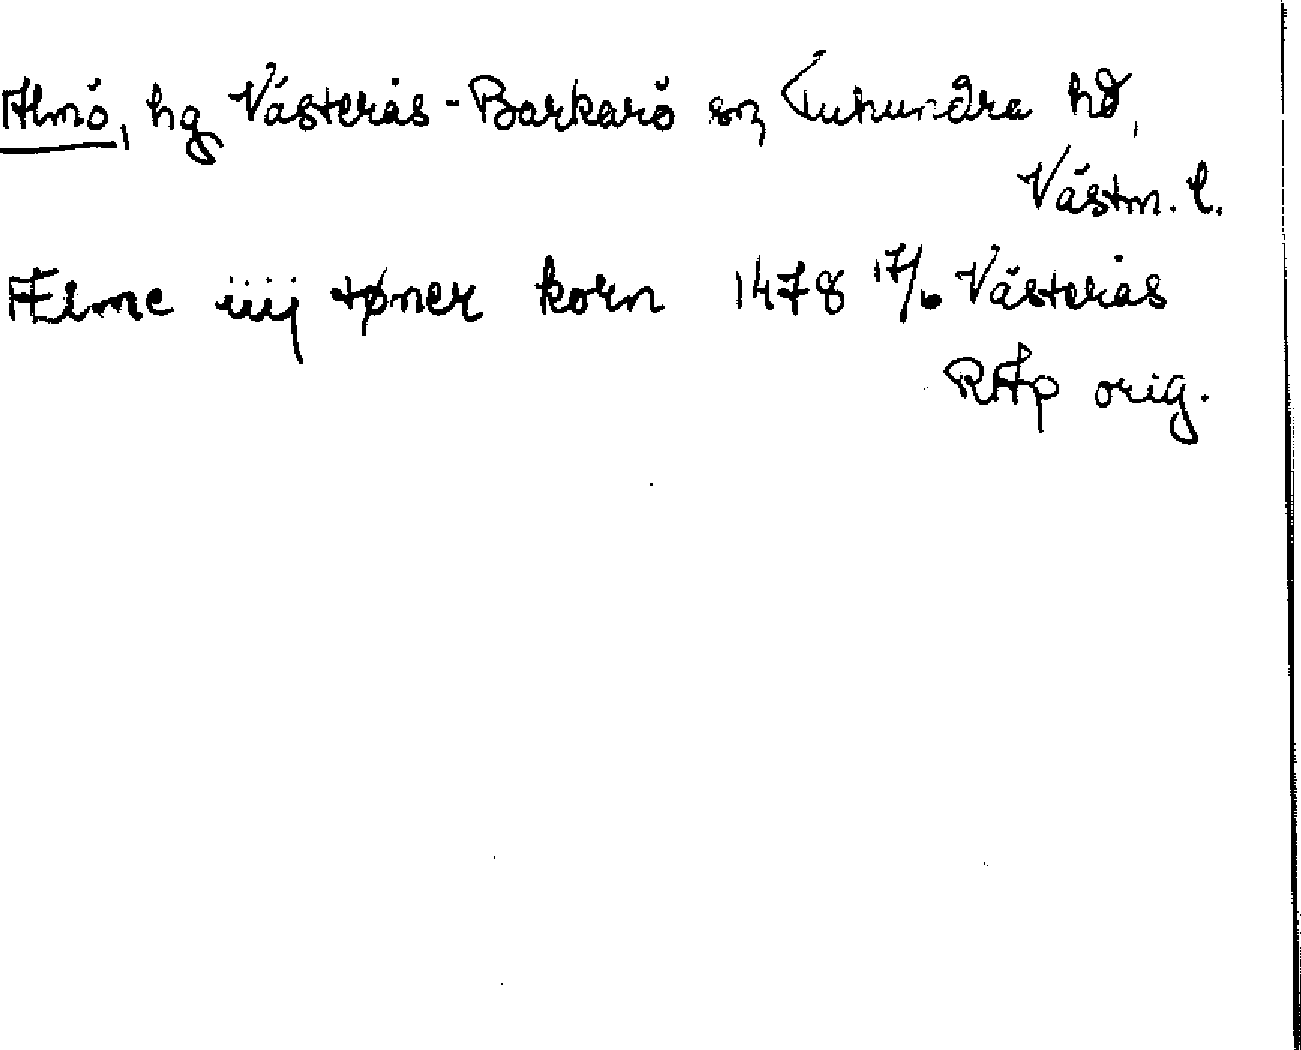 Almö, hg Västerås-Barkarö sn, Tuhundra hd,
Västm. l.
Ælme iiij tøner korn 1478 17/6 Västerås
RAp orig.